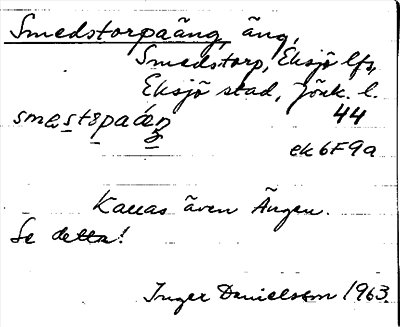 Smedstorpaäng, äng,
Smedstorp, Eksjö lfs,
Eksjö stad, Jönk. l.
44
ek6F9a
Kallas även Ängen.
Se detta!
Inger Danielsson 1963.